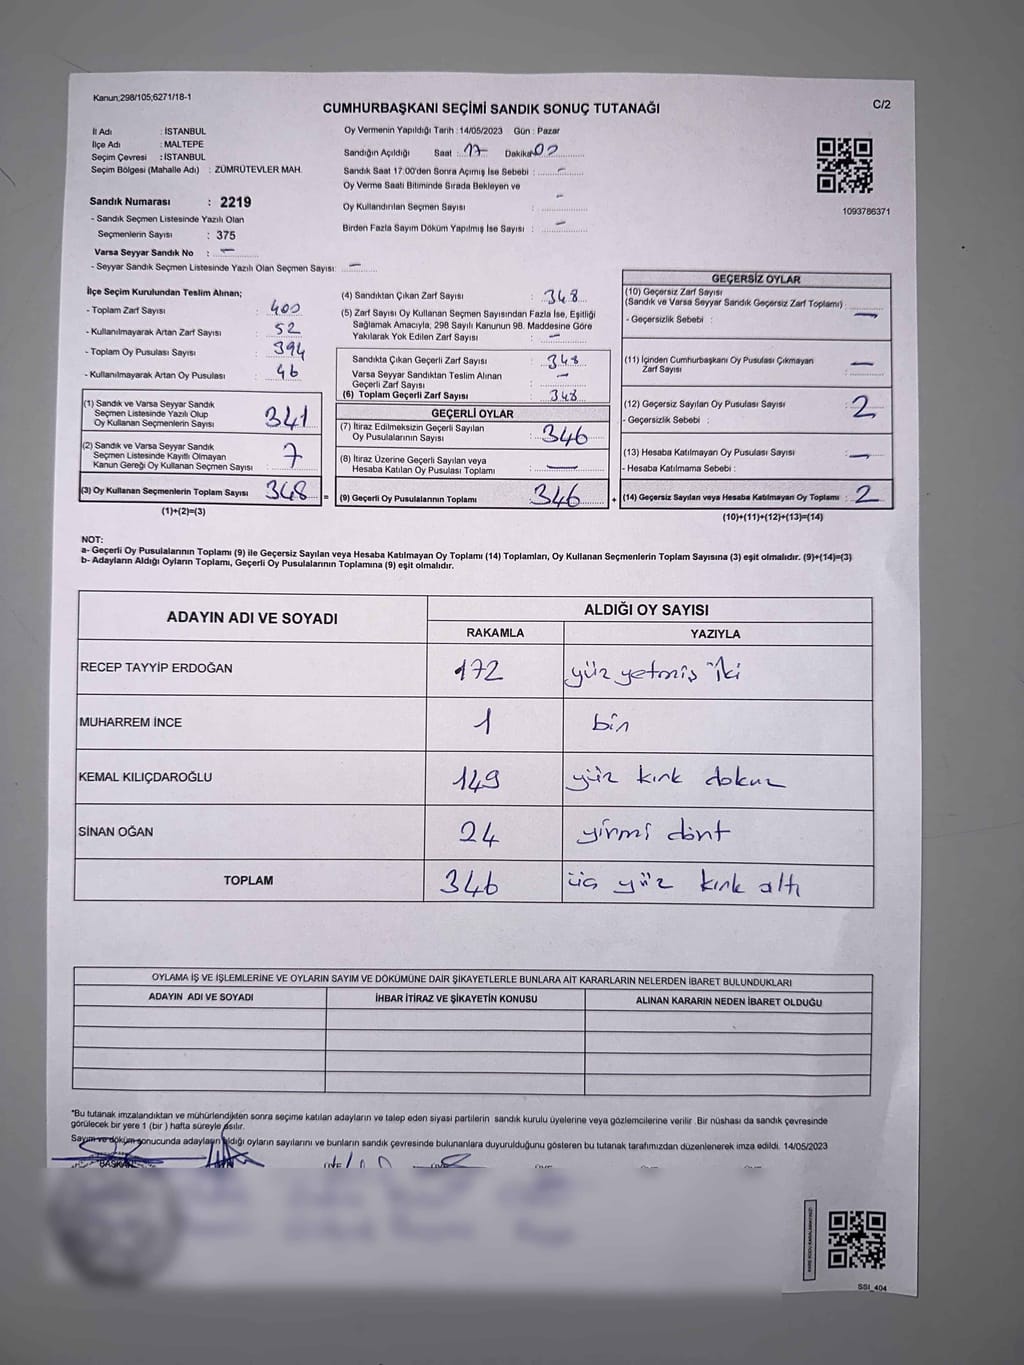 Kanun;298/105;6271/18-1
CUMHURBAŞKANI SEÇİMİ SANDIK SONUÇ TUTANAĞI
C/2
İl Adı : İSTANBUL
İlçe Adı : MALTEPE
Seçim Çevresi : İSTANBUL
Seçim Bölgesi (Mahalle Adı) : ZÜMRÜTEVLER MAH.
Oy Vermenin Yapıldığı Tarih :14/05/2023 Gün : Pazar
Sandığın Açıldığı Saat : 17 Dakika 00
Sandık Saat 17:00'den Sonra Açımış İse Sebebi : –
Oy Verme Saati Bitiminde Sırada Bekleyen ve
Oy Kullandırılan Seçmen Sayısı : –
Birden Fazla Sayım Döküm Yapılmış İse Sayısı : –
1093786371
Sandık Numarası : 2219
- Sandık Seçmen Listesinde Yazılı Olan
Seçmenlerin Sayısı : 375
Varsa Seyyar Sandık No : –
- Seyyar Sandık Seçmen Listesinde Yazılı Olan Seçmen Sayısı: –
İlçe Seçim Kurulundan Teslim Alınan;
- Toplam Zarf Sayısı : 400
- Kullanılmayarak Artan Zarf Sayısı : 52
- Toplam Oy Pusulası Sayısı : 394
- Kullanılmayarak Artan Oy Pusulası : 46
(1) Sandık ve Varsa Seyyar Sandık
Seçmen Listesinde Yazılı Olup
Oy Kullanan Seçmenlerin Sayısı 341
(2) Sandık ve Varsa Seyyar Sandık
Seçmen Listesinde Kayıtlı Olmayan
Kanun Gereği Oy Kullanan Seçmen Sayısı : 7
(3) Oy Kullanan Seçmenlerin Toplam Sayısı 348 =
(1)+(2)=(3)
(4) Sandıktan Çıkan Zarf Sayısı : 348
(5) Zarf Sayısı Oy Kullanan Seçmen Sayısından Fazla İse, Eşitliği
Sağlamak Amacıyla, 298 Sayılı Kanunun 98. Maddesine Göre
Yakılarak Yok Edilen Zarf Sayısı : –
Sandıkta Çıkan Geçerli Zarf Sayısı : 348
Varsa Seyyar Sandıktan Teslim Alınan
Geçerli Zarf Sayısı : –
(6) Toplam Geçerli Zarf Sayısı : 348
GEÇERLİ OYLAR
(7) İtiraz Edilmeksizin Geçerli Sayılan
Oy Pusulalarının Sayısı : 346
(8) İtiraz Üzerine Geçerli Sayılan veya
Hesaba Katılan Oy Pusulası Toplamı : –
(9) Geçerli Oy Pusulalarının Toplamı : 346 +
GEÇERSİZ OYLAR
(10) Geçersiz Zarf Sayısı
(Sandık ve Varsa Seyyar Sandık Geçersiz Zarf Toplamı) : –
- Geçersizlik Sebebi :
(11) İçinden Cumhurbaşkanı Oy Pusulası Çıkmayan
Zarf Sayısı : –
(12) Geçersiz Sayılan Oy Pusulası Sayısı : 2
- Geçersizlik Sebebi :
(13) Hesaba Katılmayan Oy Pusulası Sayısı : –
- Hesaba Katılmama Sebebi :
(14) Geçersiz Sayılan veya Hesaba Katılmayan Oy Toplamı : 2
(10)+(11)+(12)+(13)=(14)
NOT:
a- Geçerli Oy Pusulalarının Toplamı (9) ile Geçersiz Sayılan veya Hesaba Katılmayan Oy Toplamı (14) Toplamları, Oy Kullanan Seçmenlerin Toplam Sayısına (3) eşit olmalıdır. (9)+(14)=(3)
b- Adayların Aldığı Oyların Toplamı, Geçerli Oy Pusulalarının Toplamına (9) eşit olmalıdır.
ADAYIN ADI VE SOYADI
ALDIĞI OY SAYISI
RAKAMLA YAZIYLA
RECEP TAYYİP ERDOĞAN 172 yüz yetmiş iki
MUHARREM İNCE 1 bir
KEMAL KILIÇDAROĞLU 149 yüz kırk dokuz
SİNAN OĞAN 24 yirmi dört
TOPLAM 346 üç yüz kırk altı
OYLAMA İŞ VE İŞLEMLERİNE VE OYLARIN SAYIM VE DÖKÜMÜNE DAİR ŞİKAYETLERLE BUNLARA AİT KARARLARIN NELERDEN İBARET BULUNDUKLARI
ADAYIN ADI VE SOYADI İHBAR İTİRAZ VE ŞİKAYETİN KONUSU ALINAN KARARIN NEDEN İBARET OLDUĞU
*Bu tutanak imzalandıktan ve mühürlendikten sonra seçime katılan adayların ve talep eden siyasi partilerin sandık kurulu üyelerine veya gözlemcilerine verilir. Bir nüshası da sandık çevresinde
görülecek bir yere 1 (bir ) hafta süreyle asılır.
Sayım ve döküm sonucunda adayların aldığı oyların sayılarını ve bunların sandık çevresinde bulunanlara duyurulduğunu gösteren bu tutanak tarafımızdan düzenlenerek imza edildi. 14/05/2023
BAŞKAN
SSI_404